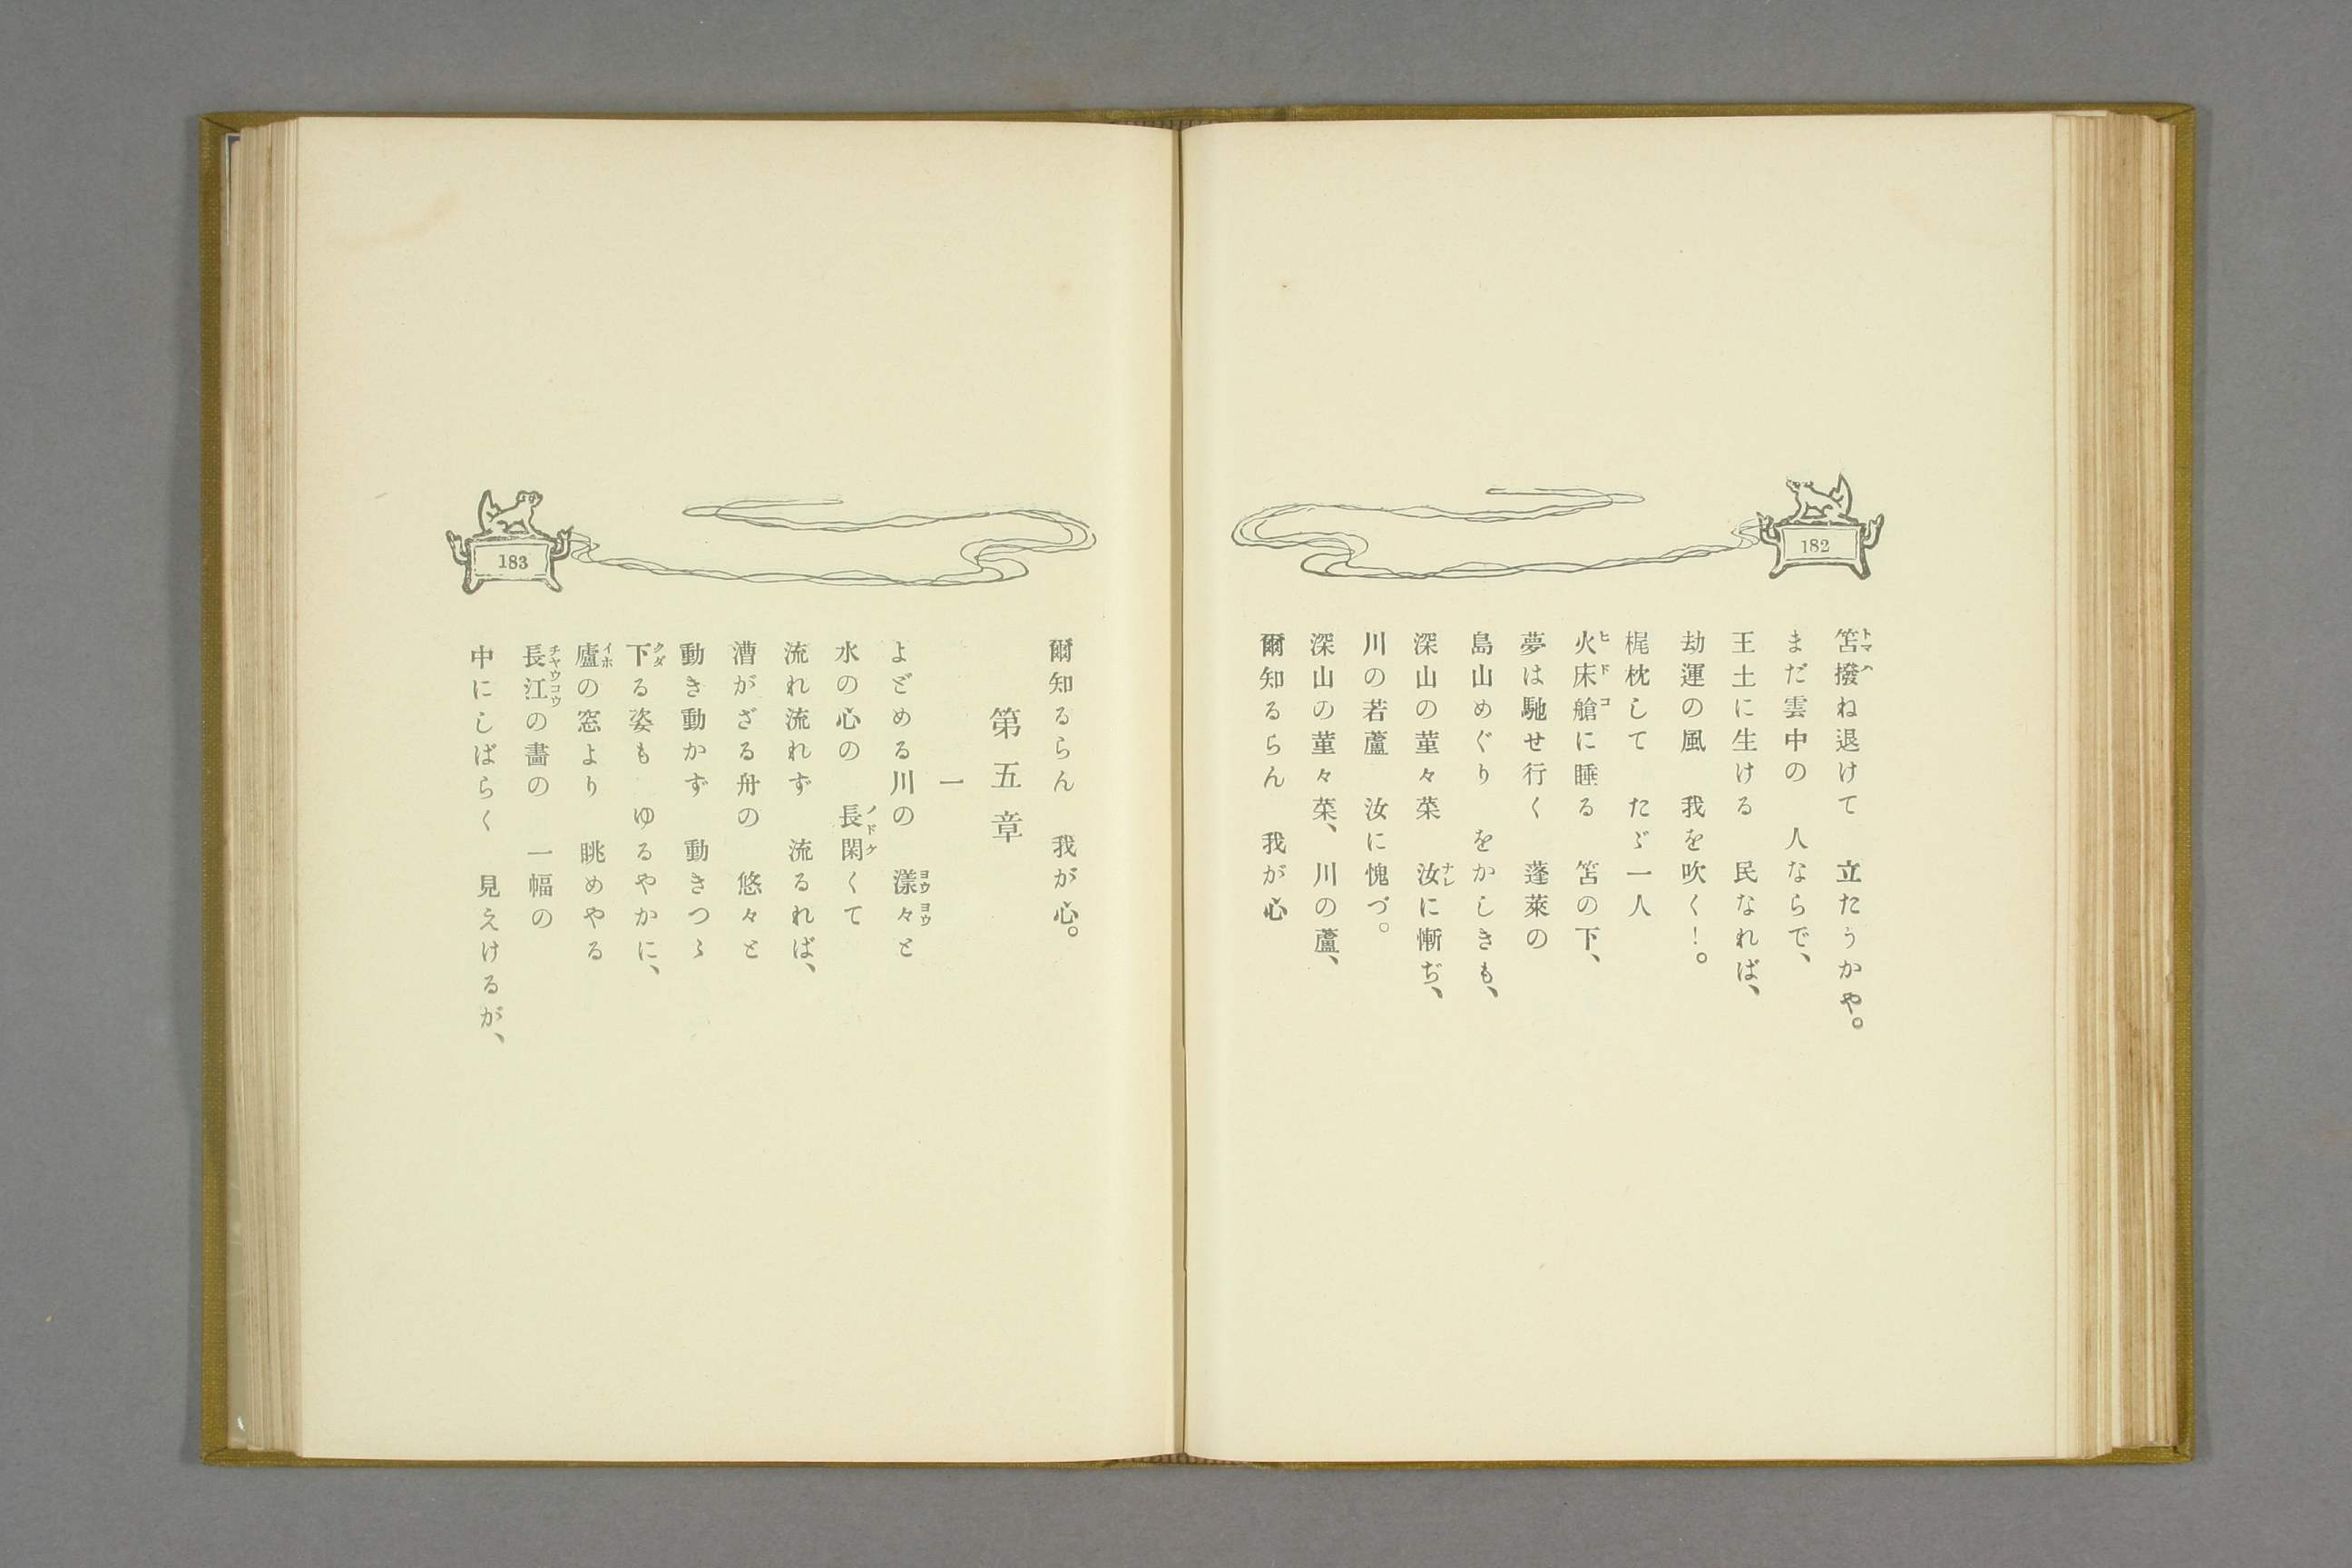 182
笘撥ね退けて　立たうかや。
まだ雲中の　人ならで、
王土に生ける　民なれば、
劫運の風　我を吹く！。
梶枕して　たゞ一人
火床艙に睡る　笘の下、
夢は馳せ行く　蓬萊の
島山めぐり　をかしきも、
深山の菫々菜　汝に慚ぢ、
川の若蘆　汝に愧づ。
深山の菫々菜、川の蘆、
爾知るらん　我が心
183
爾知るらん　我が心。
第五章
一
よどめる川の　漾々と
水の心の　長閑くて
流れ流れず　流るれば、
漕がざる舟の　悠々と
動き動かず　動きつゝ
下る姿も　ゆるやかに、
廬の窓より　眺めやる
長江の畵の　一幅の
中にしばらく　見えけるが、